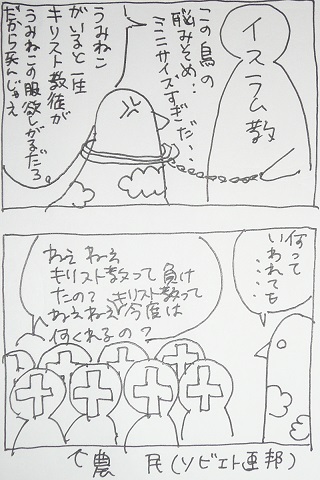 イスラム教
この鳥の
脳みそめ・・
ミニサイズすぎだ・・
うみねこ
がいると一生
キリスト教徒が
うみねこの服欲しがるだろ。
だから死んじゃえ
何って
いわれても
・・・・
ねえ ねえ
キリスト教って 負け
たの? キリスト教って
ねえねえ今度は
何くれるの?
↑農 民(ソビエト連邦)